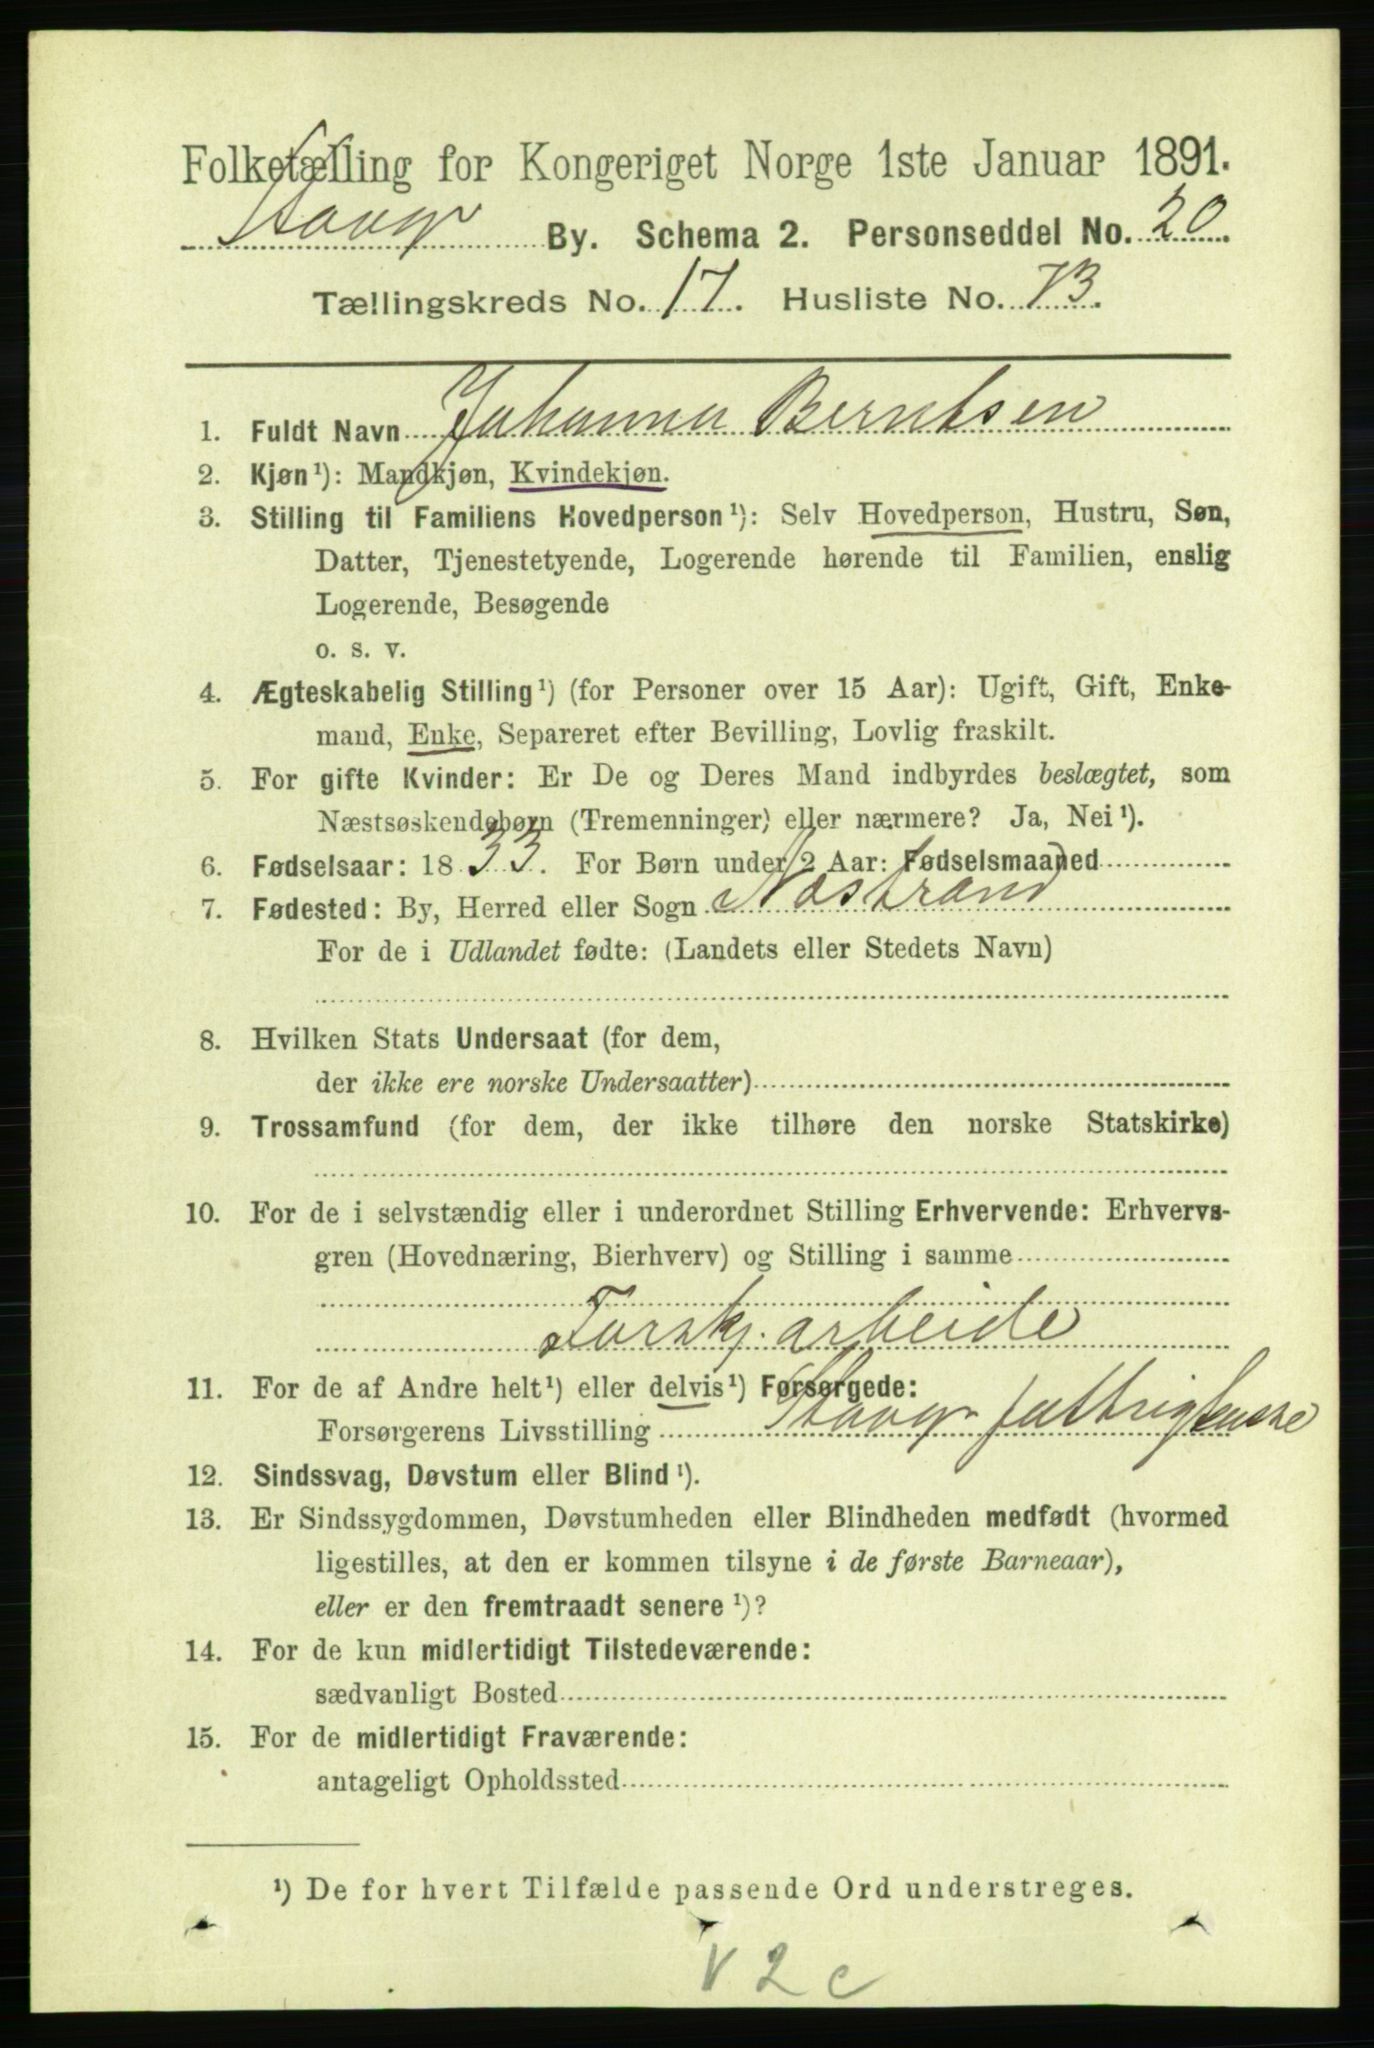 Folketælling for Kongeriget Norge 1ste Januar 1891.
Stavgr By. Schema 2. Personseddel No. 20
Tællingskreds No. 17. Husliste No. 73.
1. Fuldt Navn Johanna Berntsen
2. Kjøn¹): Mandkjøn, Kvindekjøn.
3. Stilling til Familiens Hovedperson¹): Selv Hovedperson, Hustru, Søn,
Datter, Tjenestetyende, Logerende hørende til Familien, enslig
Logerende, Besøgende
o. s. v.
4. Ægteskabelig Stilling¹) (for Personer over 15 Aar): Ugift, Gift, Enke-
mand, Enke, Separeret efter Bevilling, Lovlig fraskilt.
5. For gifte Kvinder: Er De og Deres Mand indbyrdes beslægtet, som
Næstsøskendebørn (Tremenninger) eller nærmere? Ja, Nei¹).
6. Fødselsaar: 1833. For Børn under 2 Aar: Fødselsmaaned
7. Fødested: By, Herred eller Sogn Nøstrand
For de i Udlandet fødte: (Landets eller Stedets Navn)
8. Hvilken Stats Undersaat (for dem,
der ikke ere norske Undersaatter)
9. Trossamfund (for dem, der ikke tilhøre den norske Statskirke)
10. For de i selvstændig eller i underordnet Stilling Erhvervende: Erhvervs-
gren (Hovednæring, Bierhverv) og Stilling i samme
Forskj. arbeide
11. For de af Andre helt¹) eller delvis¹) Forsørgede:
Forsørgerens Livsstilling Stavgr fattrigkasse
12. Sindssvag, Døvstum eller Blind¹).
13. Er Sindssygdommen, Døvstumheden eller Blindheden medfødt (hvormed
ligestilles, at den er kommen tilsyne i de første Barneaar),
eller er den fremtraadt senere¹)?
14. For de kun midlertidigt Tilstedeværende:
sædvanligt Bosted
15. For de midlertidigt Fraværende:
antageligt Opholdssted
¹) De for hvert Tilfælde passende Ord understreges.
V 2 c